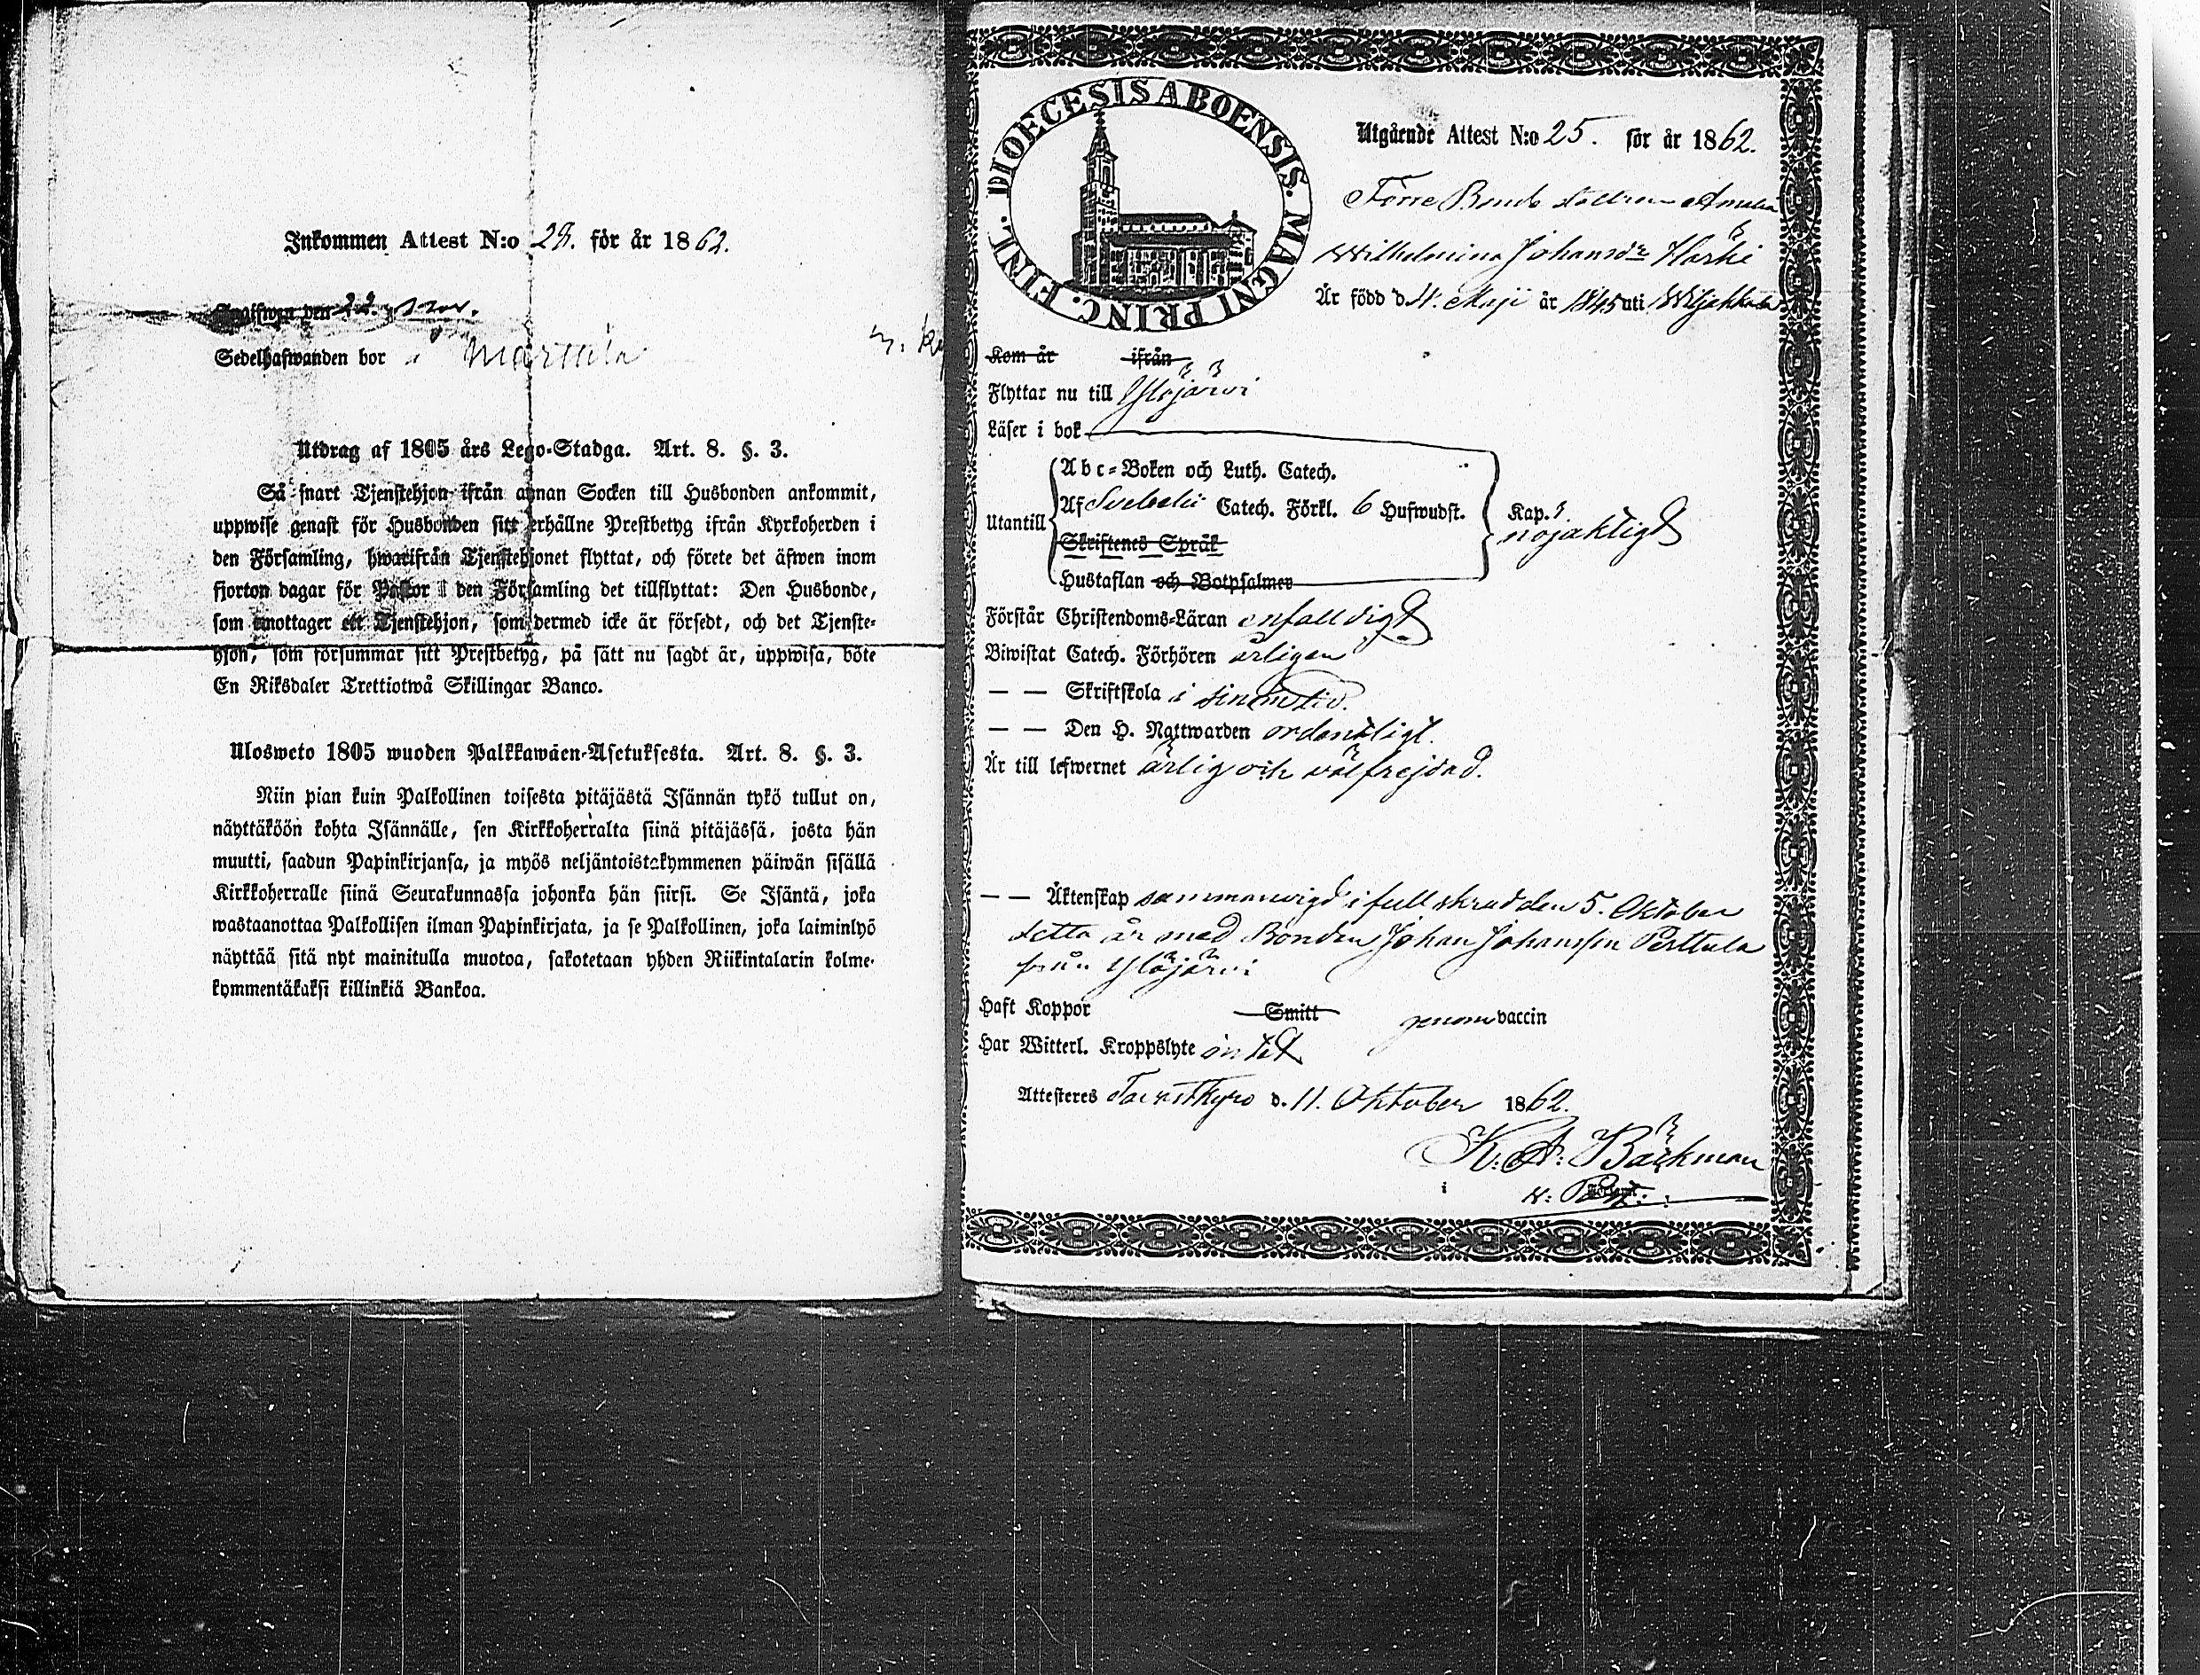 Inkommen Attest N:o 28. för år 1862.
Ingifwen den 22.
Sedelhafwanden bor i
Utdrag af 1805 års Lego-Stadga. Art. 8. §. 3.
Så snart Tjenstehjon ifrån annan Socken till Husbonden ankommit,
uppwise genast för Husbonden sitt erhållne Prestbetyg ifrån Kyrkoherden i
den Församling, hwarifrån Tjenstehjonet flyttat, och förete det äfwen inom
fjorton dagar för Pastor i den Församling det tillflyttat: Den Husbonde,
som emottager ett Tjenstehjon, som dermed icke är försedt, och det Tjenste-
hjon, som försummar sitt Prestbetyg, på sätt nu sagdt är, uppwisa, böte
En Riksdaler Trettiotwå Skillingar Banco.
Ulosweto 1805 wuoden Palkkawäen-Asetuksesta. Art. 8. §. 3.
Niin pian kuin Palkollinen toisesta pitäjästä Isännän tykö tullut on,
näyttäköön kohta Isännälle, sen Kirkkoherralta siinä pitäjässä, josta hän
muutti, saadun Papinkirjansa, ja myös neljäntoistakymmenen päiwän sisällä
Kirkkoherralle siinä Seurakunnassa johonka hän siirsi. Se Isäntä, joka
wastaanottaa Palkollisen ilman Papinkirjata, ja se Palkollinen, joka laiminlyö
näyttää sitä nyt mainitulla muotoa, sakotetaan yhden Riikintalarin kolme-
kymmentäkaksi killinkiä Bankoa.
DIOECESIS ABOENSIS. MAGNI PRINC. FINL.
Utgående Attest N:o 25. för år 1862.
Förre Bonde dottren Amalia
Wilhelmina Johansdr Harhi
Är född d. 4. Maji år 1845 uti Wiljakkala
Kom år ifrån
Flyttar nu till Ylöjärvi
Läser i bok
Utantill
Abc-Boken och Luth. Catech.
Af Svebelii Catech. Förkl. 6 Hufwudst. Kap.
nöjaktigt
Skriftenes Språk
Hustaflan och Botpsalmer
Förstår Christendoms-Läran enfalldigt
Biwistat Catech. Förhören årligen
— — Skriftskola i sinom tid.
— — Den H. Nattwarden ordentligt.
Är till lefwernet ärlig och välfrejdad.
— — Äktenskap sammanvigd i full skrud den 5. Oktober
detta år med Bonden Johan Johansson Perttula
från Ylöjärvi
Haft Koppor Smitt genom vaccin
Har Witterl. Kroppslyte intet
Attesteres Tavastkyro d. 11. Oktober 1862.
K. A. Bäckman